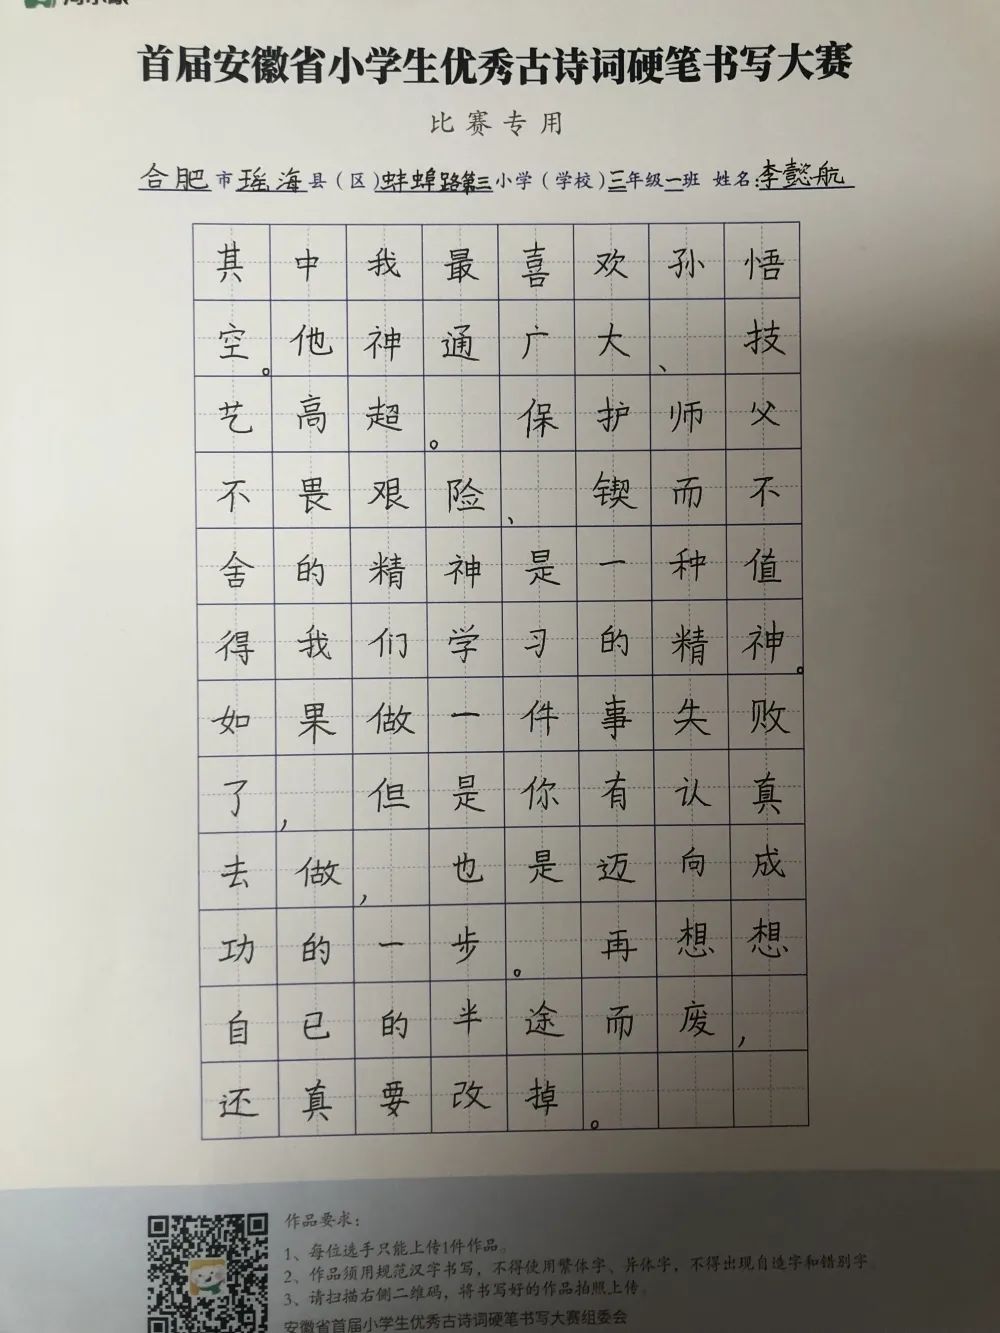 首届安徽省小学生优秀古诗词硬笔书写大赛
比赛专用
合肥市瑶海县（区）蚌埠路第三小学（学校）三年级一班 姓名：李懿航
其中我最喜欢孙悟
空。他神通广大、技
艺高超。保护师父
不畏艰险、锲而不
舍的精神是一种值
得我们学习的精神。
如果做一件事失败
了，但是你有认真
去做，也是迈向成
功的一步。再想想
自己的半途而废，
还真要改掉。
作品要求：
1、每位选手只能上传1件作品。
2、作品须用规范汉字书写，不得使用繁体字、异体字，不得出现自造字和错别字。
3、请扫描右侧二维码，将书写好的作品拍照上传。
安徽省首届小学生优秀古诗词硬笔书写大赛组委会